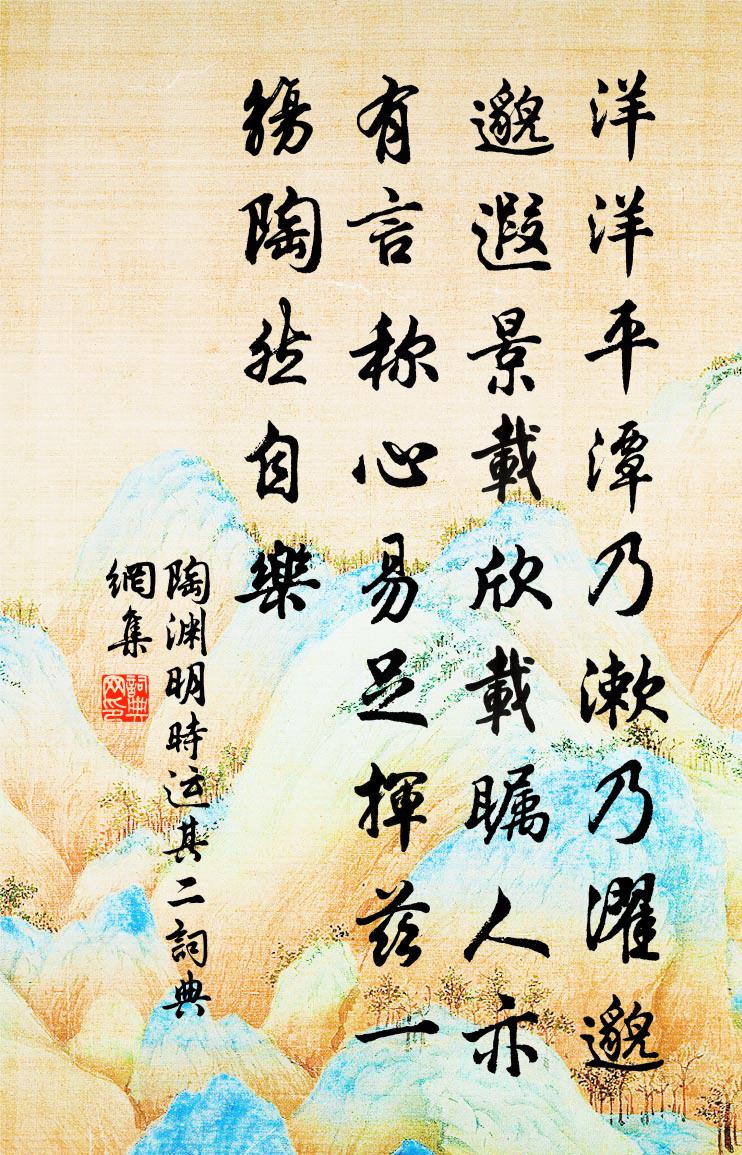 洋洋平潭乃漱乃濯邈
邈遐景載欣載瞩人亦
有言称心易足揮茲一
觴陶然自樂
陶渊明時运其二詞典
網集
詞典
网印